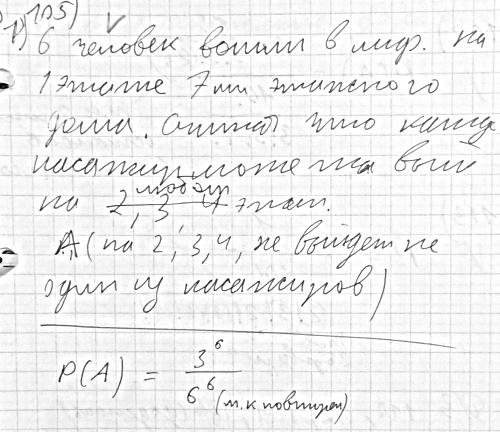 1) 105) V
6 человек вошли в лиф. на
1 этаже 7ми этажного
дома. Считая что кажд
пасажир может на вый
любом
на 2, 3, 4 этаж.
A (на 2, 3, 4, не выйдет не
один из пасажиров)
P(A) = 3^6 / 6^6 (т.к повторен)